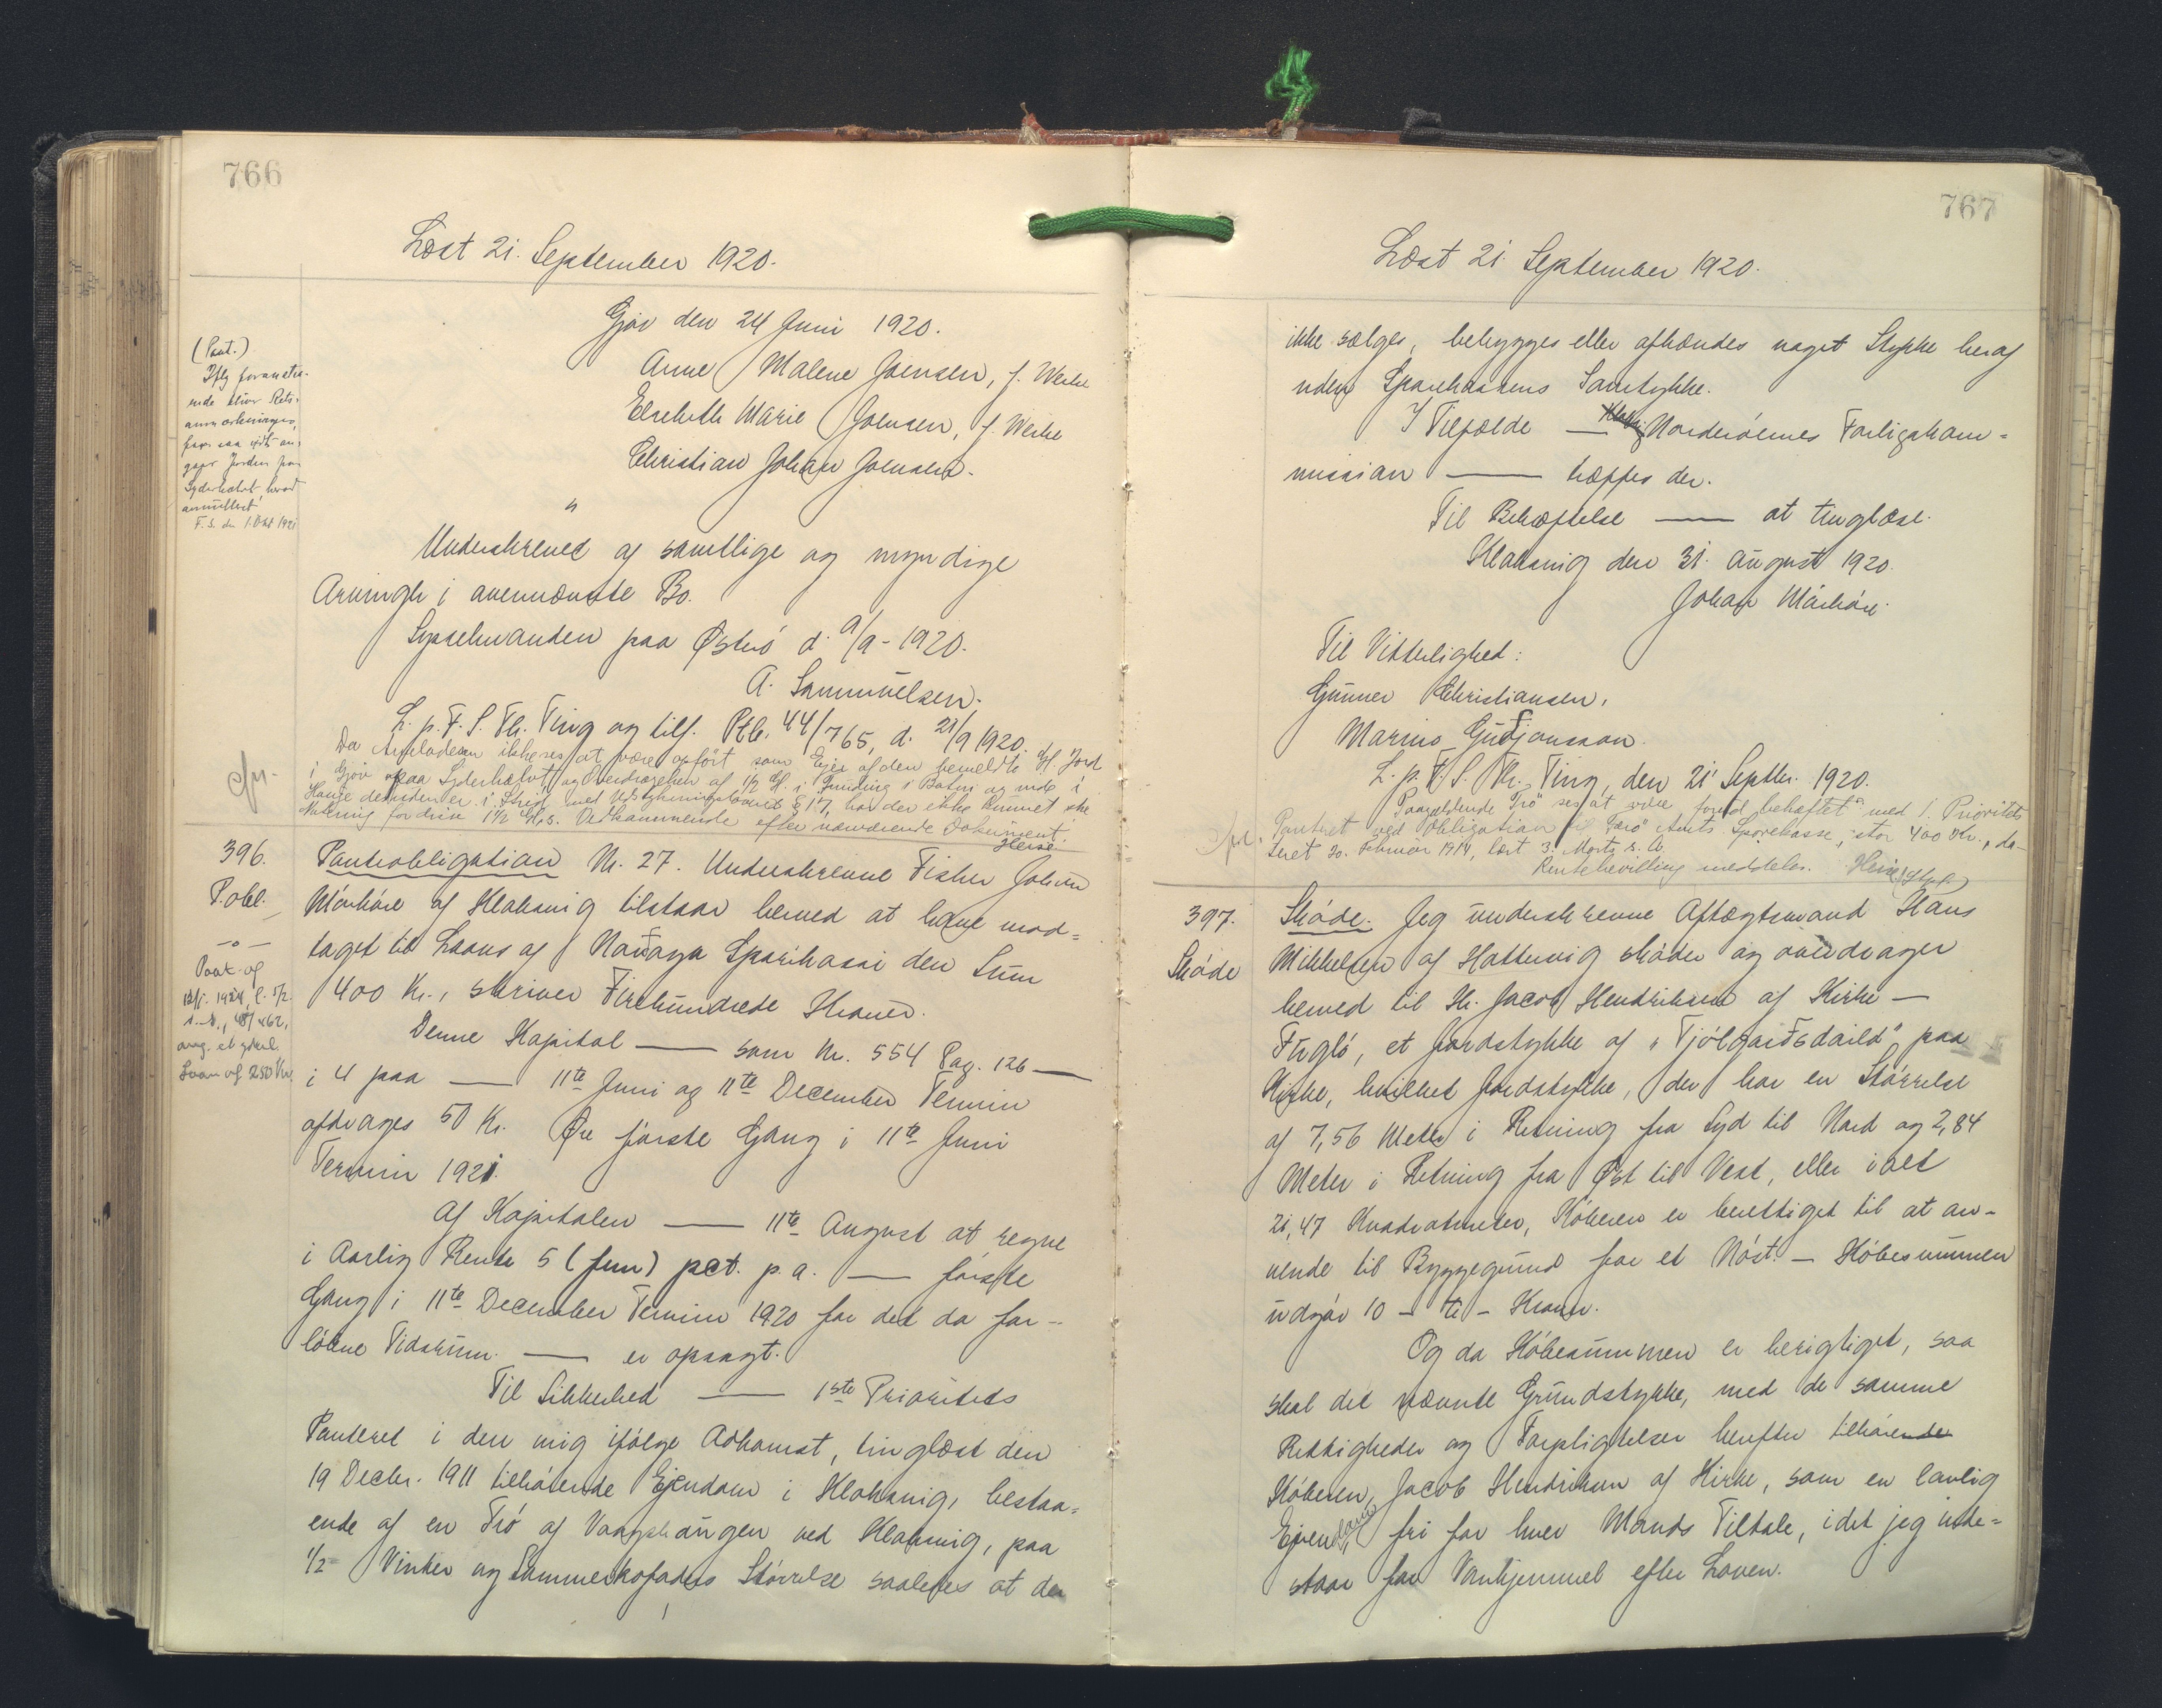 766
Læst 21. September 1920.
Gjov den 24 Juni 1920.
Anne Malene Joensen, f. Weihe
Elsebeth Marie Joensen, f. Weihe
Christian Johan Joensen.
"
Underskrevet af samtlige og myndige
Arvinger i ovennævnte Bo.
Sysselmanden paa Østerö d. 9/9-1920.
A. Sammuelsen.
L. p. F. S. Th. Ting og tilf. Ptb. 44/765, d. 21/9 1920.
Da Afdøde ikke ses at være opført som Ejer af den bemeldte Gl. Jord
i Gjov og paa Syderhalvt og Overdragelsen af 1½ Gl. i Funding i Bøtni og inde i
Hauge desuden er i Strid med Udstykningslovens § 17, har der ikke kunnet ske
Notering for disse 1½ Gl. s. Vedkommende efter nærværende Dokument.
Heise
(Pant.)
Iflg foranstaa-
ende bliver Rets-
anmærkningen,
for saa vidt an-
gaar Jorden paa
Syderhalvt, hvorved
annulleret
F. S. den 1. Okt 1921
396.
P.obl.
—o—
Paat. af
12/1. 1924, l. 5/2
s. A., 48/462,
ang. et yderl.
Laan af 250 Kr.
Pantobligation Nr. 27. Underskrevne Fisker Johan
Mörköre af Klaksvig tilstaar herved at have mod=
taget til Laans af Norðoya Sparikassi den Sum
400 Kr., skriver Firehundrede Kroner.
Denne Kapital —— som Nr. 554 Pag. 126 —
i 4 paa —— 11te Juni og 11te December Termin
afdrages 50 Kr. Öre förste Gang i 11te Juni
Termin 1921.
Af Kapitalen —— 11te August at regne
i Aarlig Rente 5 (fem) pct. p. a. —— förste
Gang i 11te December Termin 1920 for det da for-
löbne Tidsrum. —— er opsagt.
Til Sikkerhed —— 1ste Prioritets
Panteret i den mig ifölge Adkomst, tinglæst den
19 Decbr. 1911 tilhörende Ejendom i Klaksvig, bestaa=
ende af en Trö af Vaagshaugen ved Klaksvig, paa
1/2 Vinter og Sommerkofoders Störrelse saaledes at der
767
Læst 21 September 1920.
ikke sælges, bebygges eller afhændes noget Stykke heraf
uden Sparekassens Samtykke.
I Tilfælde — Norderöernes Forligskom=
mission —— træffes der.
Til Bekræftelse —— at tinglæse.
Klaksvig den 31. August 1920.
Johan Mörköre.
Til Vitterlighed:
Gunner Christiansen,
Marius Guðjonsson.
L. p. F. S. Th. Ting, den 21 Septbr. 1920.
Paagældende Trö ses at være forud behæftet med 1. Prioritets
Panteret ved Obligation til Færö Amts Sparekasse, stor 400 Kr., da-
teret 20. Februar 1914, læst 3. Marts s. A.
Rentebevilling meddeles. Heise
397.
Sköde
Sköde. Jeg underskrevne Aftægtsmand Hans
Mikkelsen af Hattervig sköder og overdrager
herved til Hr. Jacob Hendriksen af Kirke —
Fuglö, et Jordstykke af "Fjölgarðsdaild" paa
Kirke, hvilket Jordstykke, der har en Störrelse
af 7,56 Meter i Retning fra Syd til Nord og 2,84
Meter i Retning fra Öst til Vest, eller ialt
21,47 Kvadratmeter, Köberen er berettiget til at an-
vende til Byggegrund for et Nöst. — Köbesummen
udgjör 10 – ti – Kroner.
Og da Köbesummen er berigtiget, saa
skal det nævnte Grundstykke, med de samme
Rettigheder og Forpligtelser herefter tilhörende
Köberen, Jacob Hendriksen af Kirke, som en lovlig
Ejendom, fri for hver Mands Tiltale, idet jeg inde=
staar for Vanhjemmel efter Loven.